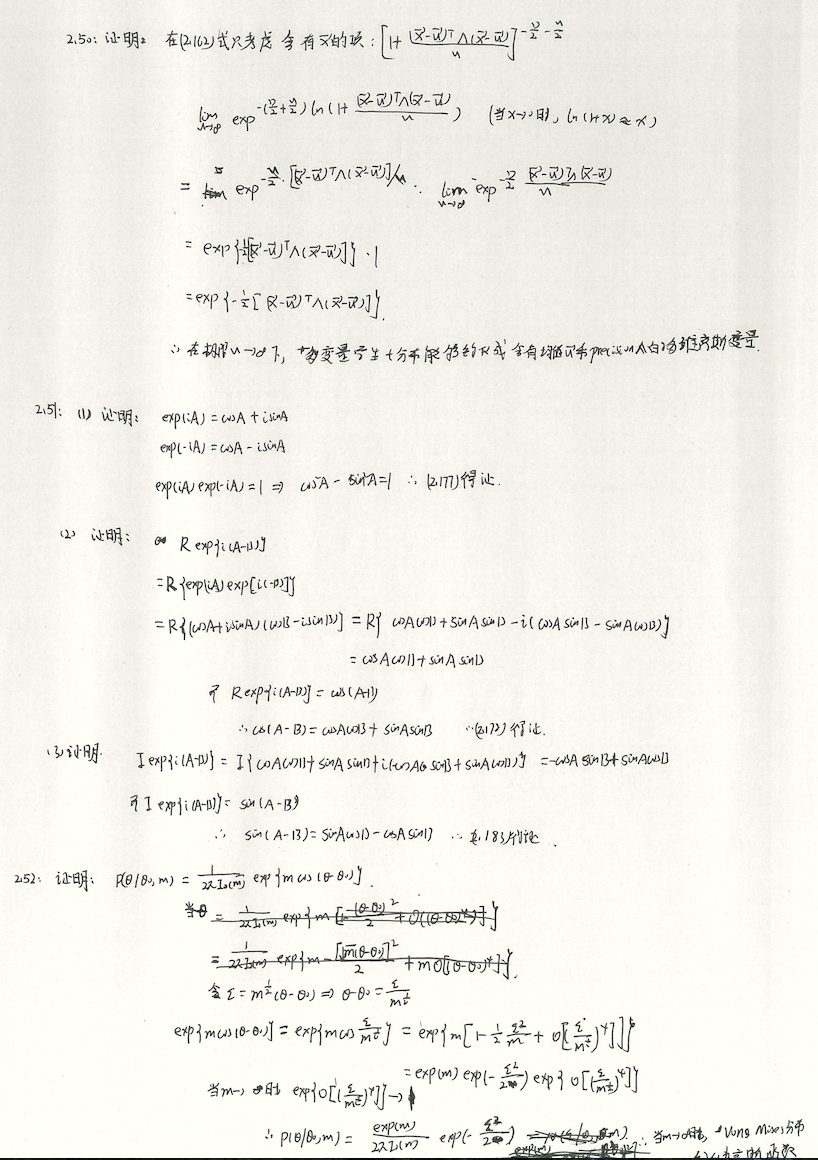 2.50: 证明: 在(2.162)式只考虑含有x的项: [1+ (x⃗-u⃗)ᵀΛ(x⃗-u⃗)/ν]^(-D/2-ν/2)
lim ν→∞ exp -(D/2+ν/2) ln(1+ (x⃗-u⃗)ᵀΛ(x⃗-u⃗)/ν) (当x→0时, ln(1+x)≈x)
= exp -ν/2·[(x⃗-u⃗)ᵀΛ(x⃗-u⃗)]/ν · lim ν→∞ exp -D/2 (x⃗-u⃗)ᵀΛ(x⃗-u⃗)/ν
= exp{-1/2[(x⃗-u⃗)ᵀΛ(x⃗-u⃗)]}·1
= exp{-1/2[(x⃗-u⃗)ᵀΛ(x⃗-u⃗)]}.
∴ 在极限ν→∞下, 多变量学生t分布能够 含有均值u⃗和precision Λ的 变量.
2.51: (1) 证明: exp(iA)=cosA+isinA
exp(-iA)=cosA-isinA
exp(iA)exp(-iA)=1 ⇒ cos²A - sin²A=1 ∴ (2.177)得证.
(2) 证明: R exp{i(A-B)}
=R{exp(iA)exp[i(-B)]}
=R{(cosA+isinA)(cosB-isinB)} = R{cosAcosB+sinAsinB-i(cosAsinB-sinAcosB)}
= cosAcosB+sinAsinB
而 R exp{i(A-B)} = cos(A-B)
∴ cos(A-B)=cosAcosB+sinAsinB ∴(2.178)得证.
(3) 证明. I exp{i(A-B)} = I{cosAcosB+sinAsinB+i(-cosAsinB+sinAcosB)} = -cosAsinB+sinAcosB
而 I exp{i(A-B)} = sin(A-B)
∴ sin(A-B)=sinAcosB-cosAsinB ∴ 2.183得证.
2.52: 证明: P(θ|θ₀,m) = 1/2πI₀(m) exp{mcos(θ-θ₀)}.
当θ = 1/2πI₀(m) exp{m[1-(θ-θ₀)²/2+O((θ-θ₀)⁴)]}
= 1/2πI₀(m) exp{m-[√m(θ-θ₀)]²/2+mO[(θ-θ₀)⁴]}.
令ξ=m^(1/2)(θ-θ₀) ⇒ θ-θ₀=ξ/m^(1/2)
exp{mcos(θ-θ₀)} = exp{mcos ξ/m^(1/2)} = exp{m[1-1/2 ξ²/m+O[(ξ/m^(1/2))⁴]]}
=exp(m)exp(-ξ²/2)exp{O[(ξ/m^(1/2))⁴]}
当m→∞时 exp{O[(ξ/m^(1/2))⁴]}→1
∴ P(θ|θ₀,m) = exp(m)/2πI₀(m) exp(-ξ²/2) ∴ 当m→∞时, Vong Mises分布